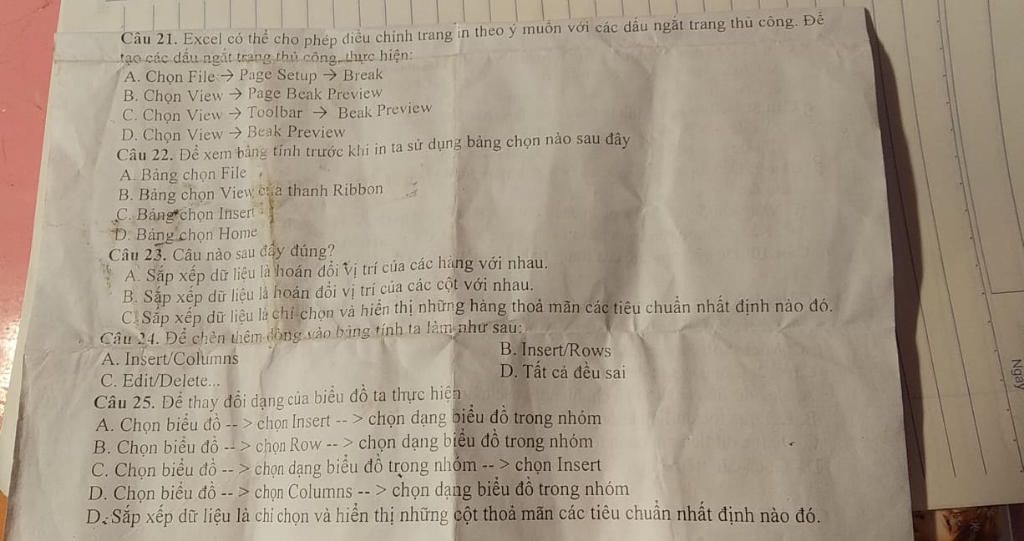 Câu 21. Excel có thể cho phép điều chỉnh trang in theo ý muốn với các dấu ngắt trang thủ công. Để
tạo các dấu ngắt trang thủ công, thực hiện:
A. Chọn File → Page Setup → Break
B. Chọn View → Page Beak Preview
C. Chọn View → Toolbar → Beak Preview
D. Chọn View → Beak Preview
Câu 22. Để xem bảng tính trước khi in ta sử dụng bảng chọn nào sau đây
A. Bảng chọn File
B. Bảng chọn View của thanh Ribbon
C. Bảng chọn Insert
D. Bảng chọn Home
Câu 23. Câu nào sau đây đúng?
A. Sắp xếp dữ liệu là hoán đổi vị trí của các hàng với nhau.
B. Sắp xếp dữ liệu là hoán đổi vị trí của các cột với nhau.
C. Sắp xếp dữ liệu là chỉ chọn và hiển thị những hàng thoả mãn các tiêu chuẩn nhất định nào đó.
Câu 24. Để chèn thêm dòng vào bảng tính ta làm như sau:
A. Insert/Columns B. Insert/Rows
C. Edit/Delete... D. Tất cả đều sai
Câu 25. Để thay đổi dạng của biểu đồ ta thực hiện
A. Chọn biểu đồ -- > chọn Insert -- > chọn dạng biểu đồ trong nhóm
B. Chọn biểu đồ -- > chọn Row -- > chọn dạng biểu đồ trong nhóm
C. Chọn biểu đồ -- > chọn dạng biểu đồ trong nhóm -- > chọn Insert
D. Chọn biểu đồ -- > chọn Columns -- > chọn dạng biểu đồ trong nhóm
D. Sắp xếp dữ liệu là chỉ chọn và hiển thị những cột thoả mãn các tiêu chuẩn nhất định nào đó.
Ngày